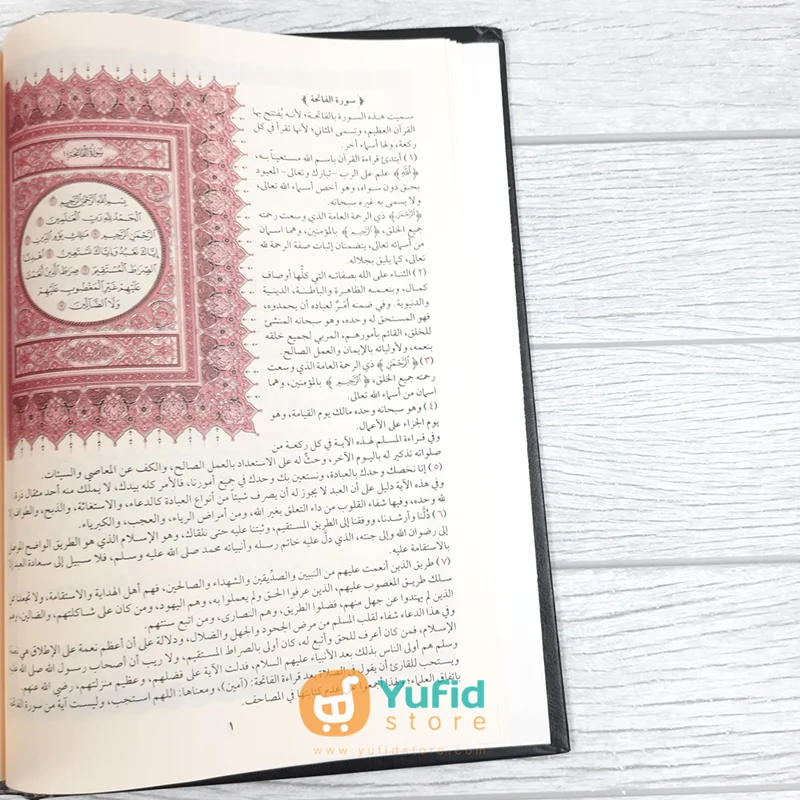 ﴿ سورة الفاتحة ﴾
سميت هذه السورة بالفاتحة؛ لأنه يُفتتح بها
القرآن العظيم، وتسمى المثاني؛ لأنها تقرأ في كل
ركعة، ولها أسماء أخر.
(١) أبتدئ قراءة القرآن باسم الله مستعيناً به،
﴿ٱللَّهِ﴾ علم على الرب -تبارك وتعالى- المعبود
بحق دون سواه، وهو أخص أسماء الله تعالى،
ولا يسمى به غيره سبحانه.
﴿ٱلرَّحْمَٰنِ﴾ ذي الرحمة العامة الذي وسعت رحمته
جميع الخلق، ﴿ٱلرَّحِيمِ﴾ بالمؤمنين، وهما اسمان
من أسمائه تعالى، يتضمنان إثبات صفة الرحمة لله
تعالى، كما يليق بجلاله.
(٢) الثناء على الله بصفاته التي كلُّها أوصاف
كمال، وبنعمه الظاهرة والباطنة، الدينية
والدنيوية. وفي ضمنه أَمْرٌ لعباده أن يحمدوه،
فهو المستحق له وحده، وهو سبحانه المنشئ
للخلق، القائم بأمورهم، المربي لجميع خلقه
بنعمه، ولأوليائه بالإيمان والعمل الصالح.
(٣) ﴿ٱلرَّحْمَٰنِ﴾ ذي الرحمة العامة الذي وسعت
رحمته جميع الخلق، ﴿ٱلرَّحِيمِ﴾ بالمؤمنين، وهما
اسمان من أسماء الله تعالى.
(٤) وهو سبحانه وحده مالك يوم القيامة، وهو
يوم الجزاء على الأعمال.
وفي قراءة المسلم لهذه الآية في كل ركعة من
صلواته تذكير له باليوم الآخر، وحثٌّ له على الاستعداد بالعمل الصالح، والكف عن المعاصي والسيئات.
(٥) إنا نخصك وحدك بالعبادة، ونستعين بك وحدك في جميع أمورنا، فالأمر كله بيدك، لا يملك منه أحد مثقال ذرة.
وفي هذه الآية دليل على أن العبد لا يجوز له أن يصرف شيئاً من أنواع العبادة كالدعاء، والاستغاثة، والذبح، والطواف إلا
لله وحده، وفيها شفاء القلوب من داء التعلق بغير الله، ومن أمراض الرياء، والعجب، والكبرياء.
(٦) دُلَّنا وأرشدنا، ووفقنا إلى الطريق المستقيم، وثبتنا عليه حتى نلقاك، وهو الإسلام الذي هو الطريق الواضح الموصل
إلى رضوان الله وإلى جنته، الذي دلّ عليه خاتم رسله وأنبيائه محمد صلى الله عليه وسلم، فلا سبيل إلى سعادة العبد إلا
بالاستقامة عليه.
(٧) طريق الذين أنعمت عليهم من النبيين والصدِّيقين والشهداء والصالحين، فهم أهل الهداية والاستقامة، ولا تجعلنا ممن
سلك طريق المغضوب عليهم، الذين عرفوا الحق ولم يعملوا به، وهم اليهود، ومن كان على شاكلتهم، والضالين، وهم
الذين لم يهتدوا عن جهل منهم، فضلوا الطريق، وهم النصارى، ومن اتبع سنتهم.
وفي هذا الدعاء شفاء لقلب المسلم من مرض الجحود والجهل والضلال، ودلالة على أن أعظم نعمة على الإطلاق هي نعمة
الإسلام، فمن كان أعرف للحق وأتبع له، كان أولى بالصراط المستقيم، ولا ريب أن أصحاب رسول الله صلى الله عليه
وسلم هم أولى الناس بذلك بعد الأنبياء عليهم السلام، فدلت الآية على فضلهم، وعظيم منزلتهم، رضي الله عنهم.
ويستحب للقارئ أن يقول في الصلاة بعد قراءة الفاتحة: (آمين)، ومعناها: اللهم استجب، وليست آية من سورة الفاتحة
باتفاق العلماء؛ ولهذا أجمعوا على عدم كتابتها في المصاحف.
١
سُورَةُ الفَاتِحَةِ
بِسْمِ ٱللَّهِ ٱلرَّحْمَٰنِ ٱلرَّحِيمِ ١
ٱلْحَمْدُ لِلَّهِ رَبِّ ٱلْعَٰلَمِينَ ٢
ٱلرَّحْمَٰنِ ٱلرَّحِيمِ ٣ مَٰلِكِ يَوْمِ ٱلدِّينِ ٤
إِيَّاكَ نَعْبُدُ وَإِيَّاكَ نَسْتَعِينُ ٥ ٱهْدِنَا
ٱلصِّرَٰطَ ٱلْمُسْتَقِيمَ ٦ صِرَٰطَ ٱلَّذِينَ أَنْعَمْتَ
عَلَيْهِمْ غَيْرِ ٱلْمَغْضُوبِ عَلَيْهِمْ
وَلَا ٱلضَّآلِّينَ ٧
Yufid
store
www.yufidstore.com